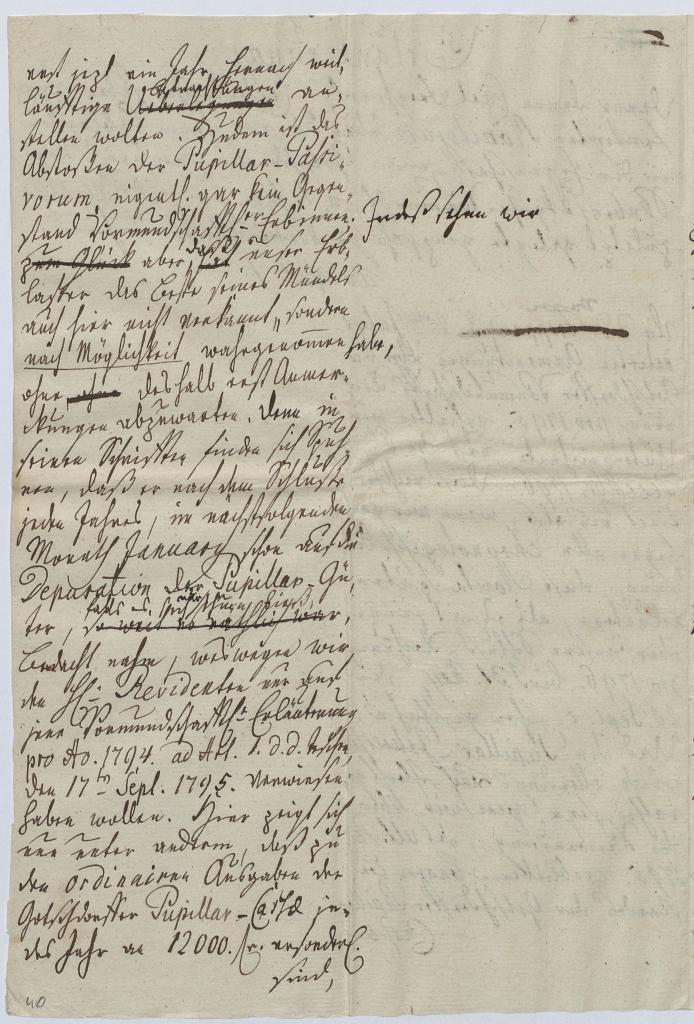 erst jezt ein Jahr hernach weit,
läufftige Betrachtungen
Ueberlegungen an,
stellen wolten. Zudem ist das
Abstoßen der Pupillar-Passi,
vorum, eigentl. gar kein Gegen,
stand Vormundschafftl. Erbinnen. Indeß sehen wir
zum Glück aber, daß unser Erb,
lasser das Beste seines Mündels
auch hier nicht verkannt, sondern
nach Möglichkeit wahrgenommen habe,
ohne ohne deshalb erst Anmer,
ckungen abzuwarten. Denn in
seinen Schrifften finden sich Spuh,
ren, daß er nach dem Schluße
jeden Jahres, im nächstfolgenden
Monath January schon auf die
Depuration der Pupillar-Gü,
falls es sich thun ließ,
ter, so weit es möglich war,
bedacht nahm, weswegen wir
den H. Revidenten nur auf
jene Vormundschafftl. Erläuterung
pro Ao. 1794. ad Art. 1. d. d. Teschen
den 17ten Sept. 1795. verwiesen
haben wollen. Hier zeigt sich
nun unter andern, daß zu
den ordinairen Ausgaben der
Gotschdorffer Pupillar-Cassæ je,
des Jahr an 12000. fr. erforderl.
sind,
40